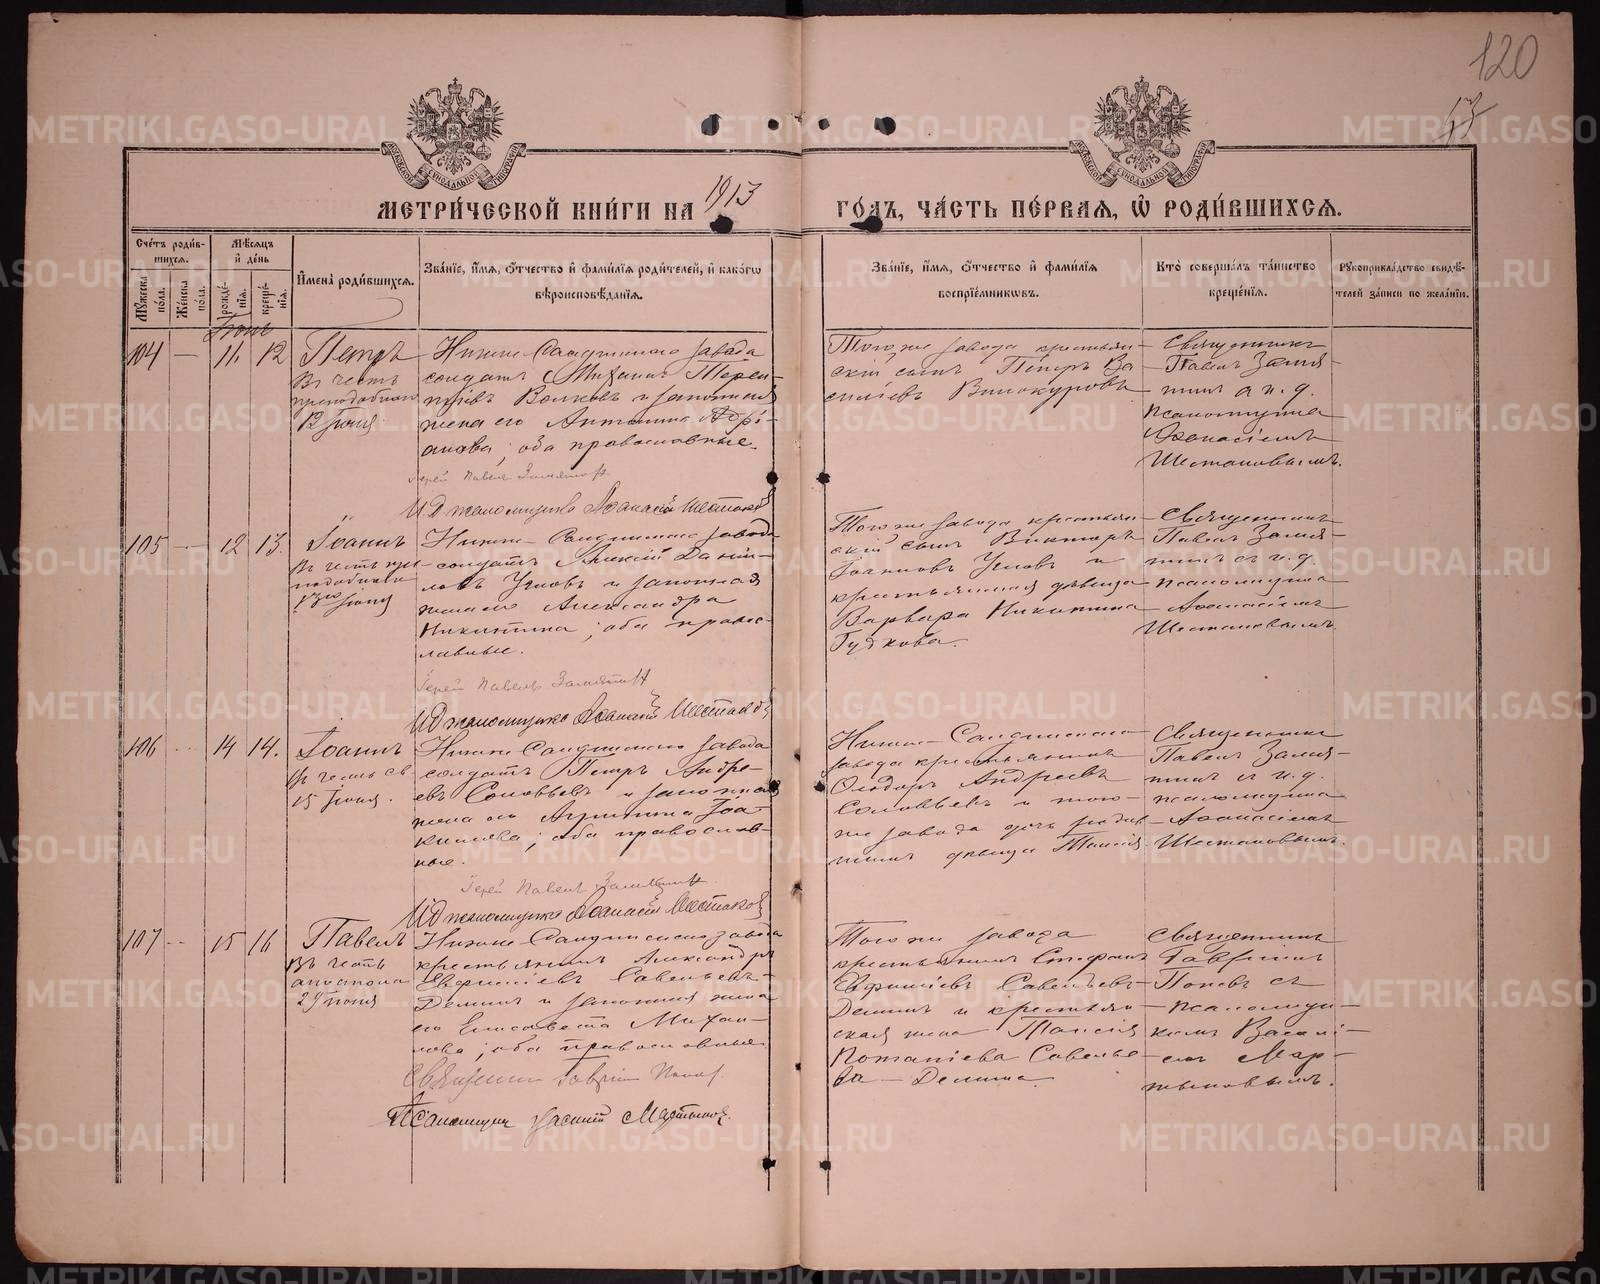 120
57
МОСКОВСКОЙ СѴНОДАЛЬНОЙ ТИПОГРАФІИ
МОСКОВСКОЙ СѴНОДАЛЬНОЙ ТИПОГРАФІИ
МЕТРИ́ЧЕСКОЙ КНИ́ГИ НА 1913
ГО́ДЪ, ЧА́СТЬ ПЕ́РВАЯ, Ѡ҆ РОДИ́ВШИХСЯ.
Сче́тъ роди́в-
шихся.
Мꙋжеска по́ла.
Же́нска по́ла.
Мѣ́сяцъ
и҆ де́нь
рожде́-
нїя.
креще́-
нїя.
И҆мена̀ роди́вшихся.
Зва́нїе, и҆́мя, о҆́тчество и҆ фами́лїя роди́телей, и҆ како́гѡ
вѣроисповѣ́данїя.
Зва́нїе, и҆́мя, о҆́тчество и҆ фами́лїя
воспрїе́мникѡвъ.
Кто̀ соверша́лъ та́инство
креще́нїя.
Рꙋкоприкла́дство свидѣ́-
телей за́писи по жела́нїю.
Іюнь
104 — 11 12 Петръ
въ честь
преподобнаго
12 Іюня.
Нижне-Салдинскаго завода
солдатъ Михаилъ Терен-
тіевъ Волковъ и законная
жена его Антонина Адрі-
анова; оба православные.
Іерей Павелъ Замятинъ
И.Д псаломщика Аѳанасій Шестаковъ
Того же завода крестьян-
скій сынъ Петръ Ва
силіевъ Винокуровъ
Священникъ
Павелъ Замя-
тинъ и и. д.
псаломщика
Аѳанасіемъ
Шестаковымъ.
105 — 12 13. Іоаннъ
въ честь пре-
подобнаго
Іюня
Нижне-Салдинскаго завода
солдатъ Алексій Даніи-
ловъ Ушовъ и законная
жена его Александра
Никитина; оба право-
славные.
Іерей Павелъ Замятинъ
И.Д псаломщика Аѳанасій Шестаковъ
Того же завода крестьян-
скій сынъ Викторъ
Іоанновъ Ушовъ и
крестьянская дѣвица
Варвара Никитина
Гудкова.
Священникъ
Павелъ Замя-
тинъ съ и. д.
псаломщика
Аѳанасіемъ
Шестаковымъ.
106 — 14 14. Іоаннъ
въ честь св
15 Іюня.
Нижне-Салдинскаго завода
солдатъ Петръ Андре-
евъ Соловьевъ и законная
жена его Агриппина Іоа-
кимова; оба православ-
ные.
Іерей Павелъ Замятинъ
И.Д псаломщика Аѳанасій Шестаковъ
Нижне-Салдинскаго
завода крестьянинъ
Ѳеодоръ Андреевъ
Соловьевъ и того-
же завода дочь
дѣвица Таисія
Священникъ
Павелъ Замя-
тинъ и и. д.
псаломщика
Аѳанасіемъ
Шестаковымъ.
107 — 15 16 Павелъ
въ честь
апостола
29 Іюня
Нижне-Салдинскаго завода
крестьянинъ Александръ
Евфиміевъ Савельевъ-
Деминъ и законная жена
его Елисавета Михаи-
лова; оба православные.
Священникъ Гавріилъ Поповъ
Псаломщикъ Василій Мартыновъ.
Того же завода
крестьянинъ Стефанъ
Евфиміевъ Савельевъ-
Деминъ и крестьян-
ская жена Таисія
Потапіева Савелье-
ва-Демина
Священникъ
Гавріилъ
Поповъ съ
псаломщи-
комъ Василі-
емъ Мар-
тыновымъ.